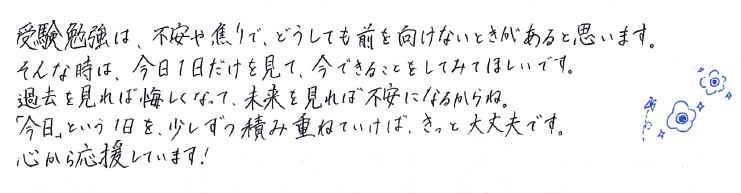 受験勉強は、不安や焦りで、どうしても前を向けないときがあると思います。
そんな時は、今日1日だけを見て、今できることをしてみてほしいです。
過去を見れば悔しくなって、未来を見れば不安になるからね。
「今日」という1日を、少しずつ積み重ねていけば、きっと大丈夫です。
心から応援しています!